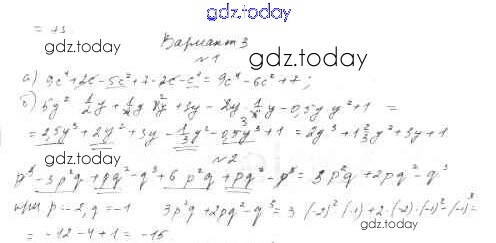 gdz.today
= 13.
gdz.today
Вариант 3
gdz.today
№1
а) 9c⁴+2c-5c²+7-2c-c²= 9c⁴-6c²+7;
gdz.today
б) 5y² · ½y + ½y · 2y +3y - 2y · y - 0,5y · y²+1 =
= 2,5y³+2y²+3y-⅓y²-0,5y³+1 = 2y³+1⅔y²+3y+1
gdz.today
№2
p³-3p²q+pq²-q³+6p²q+pq²-p³= 3p²q+2pq²-q³
gdz.today
при p=-2, q=-1 3p²q+2pq²-q³= 3·(-2)²·(-1)+2·(-2)·(-1)²-(-1)³=
= -12-4+1=-15.
gdz.today